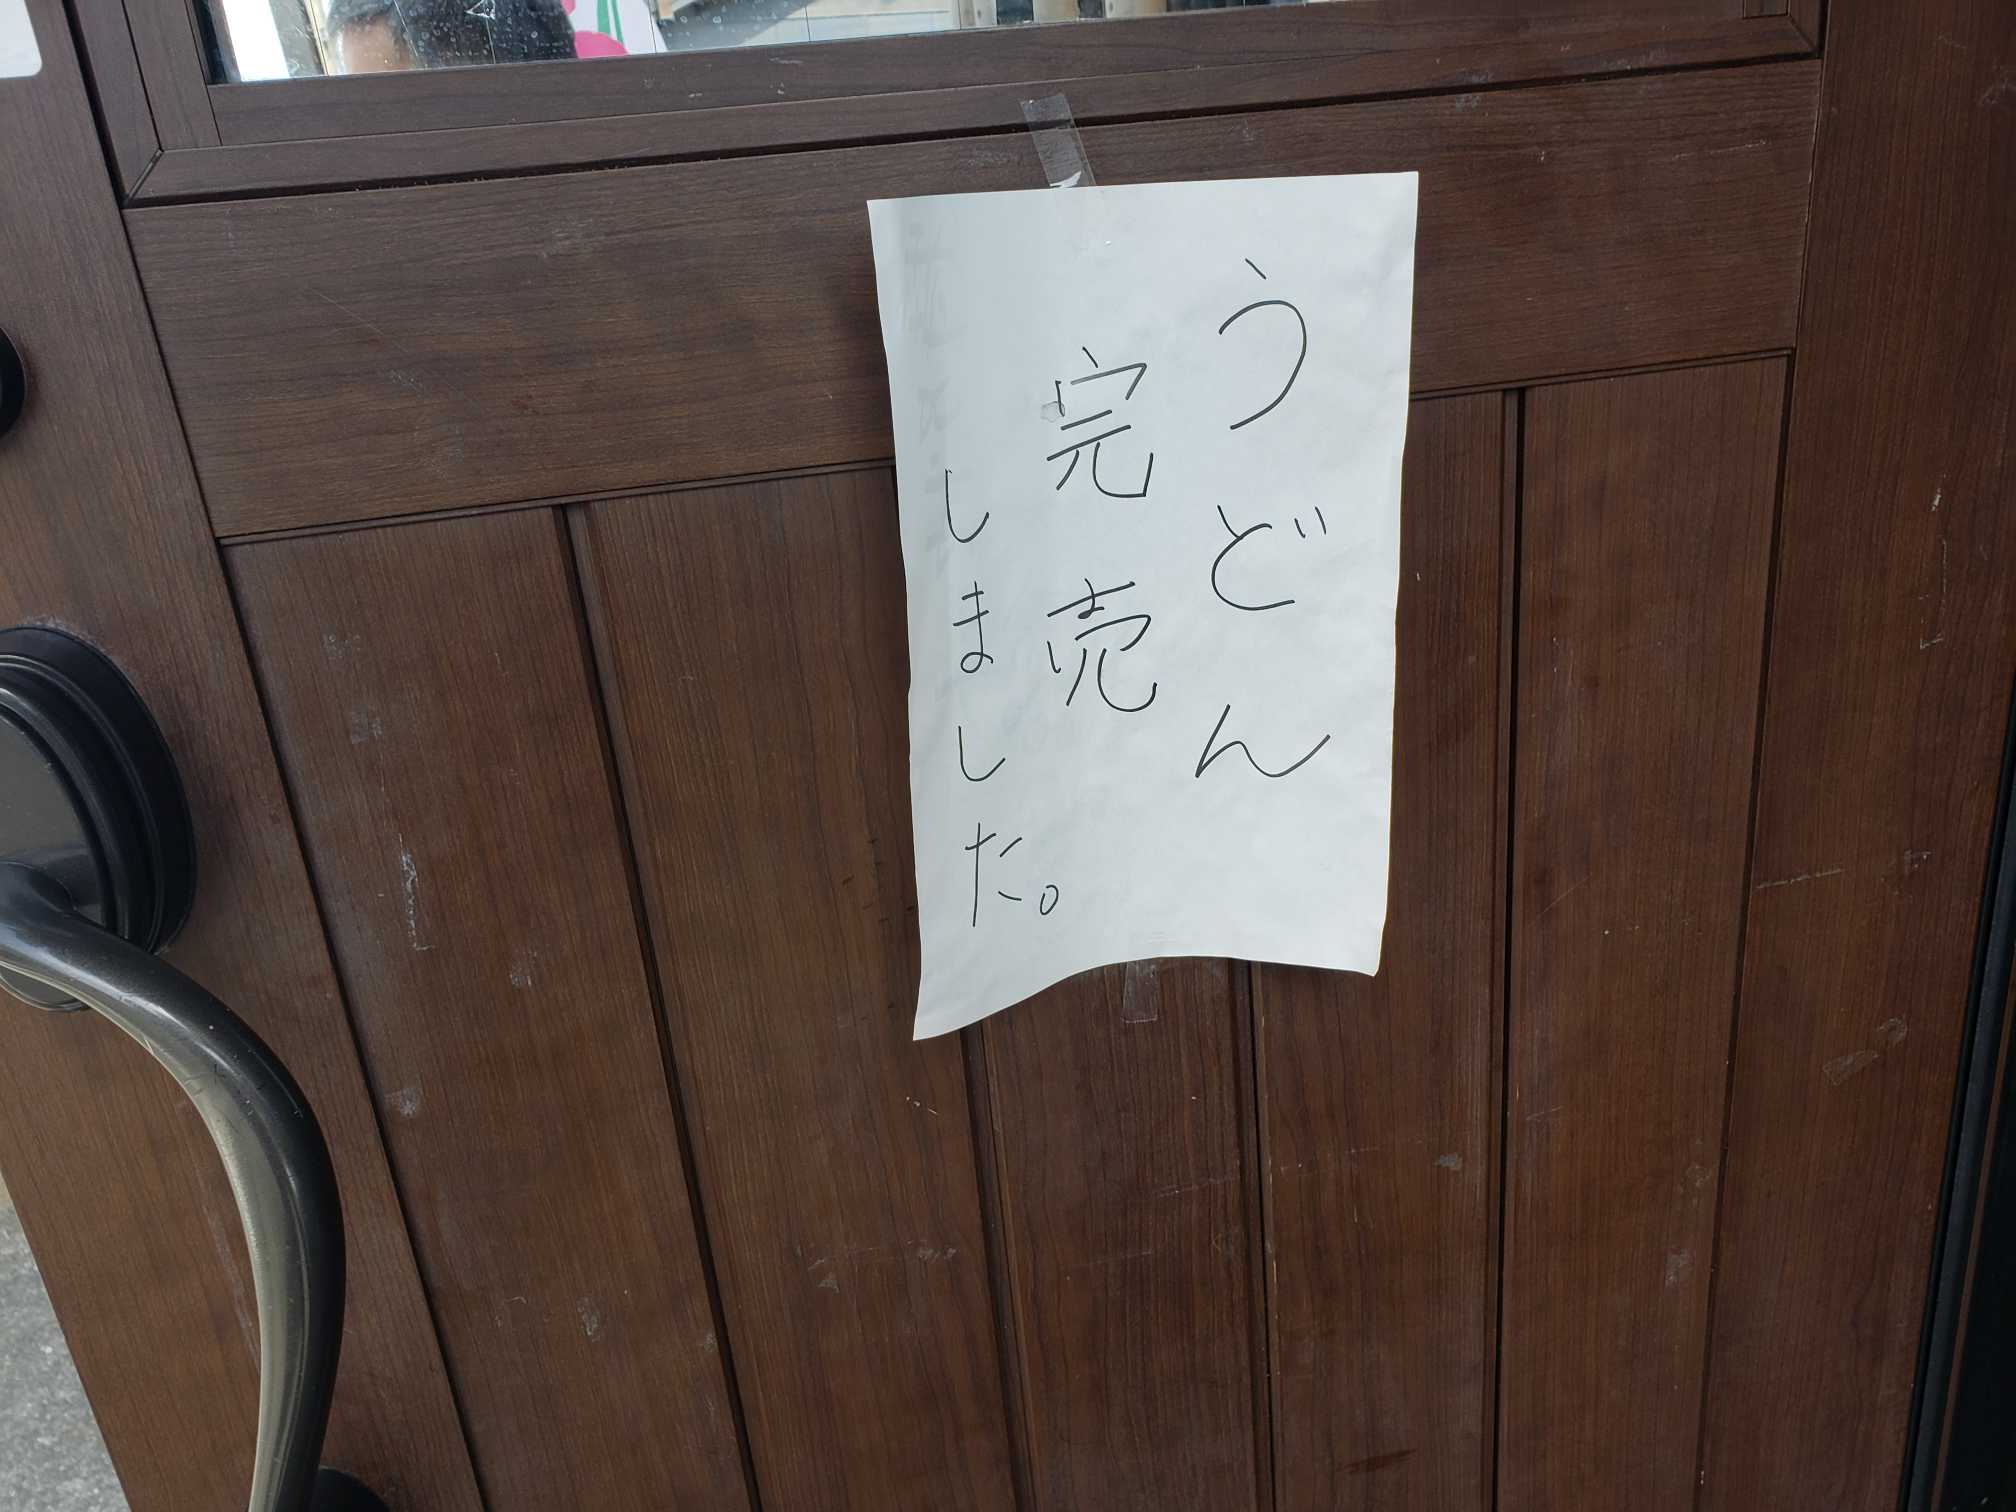 うどん
完売
しました。